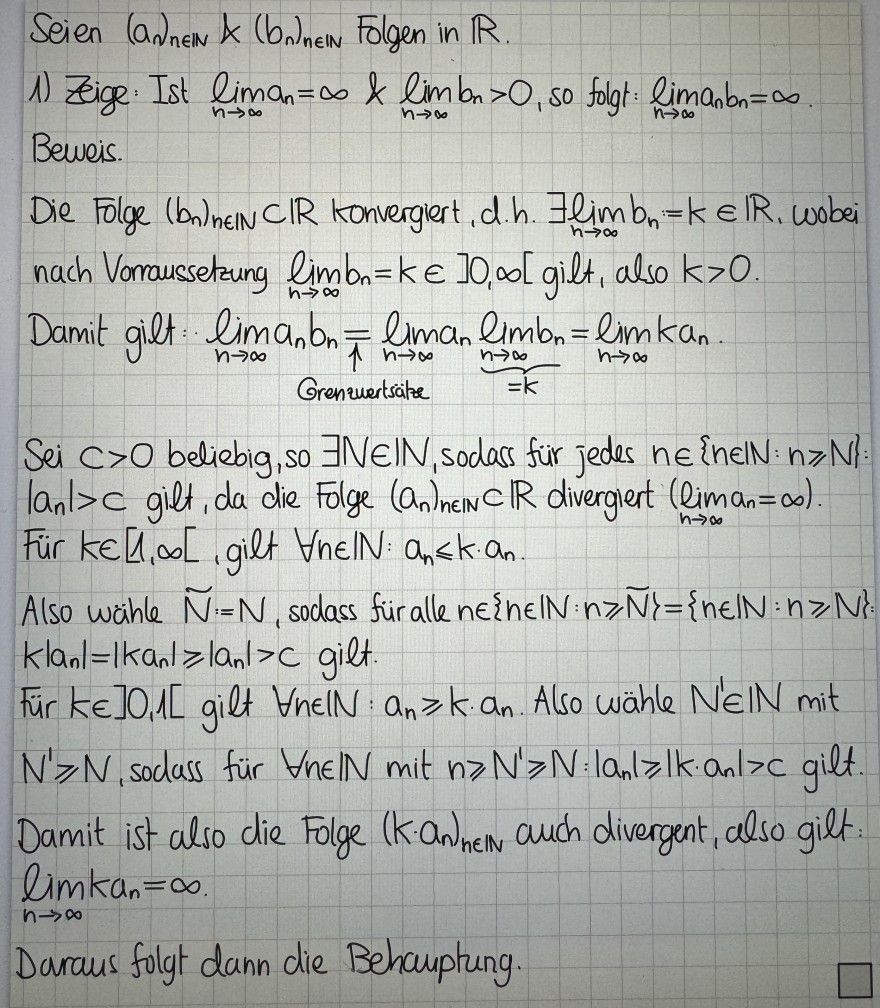 Seien (aₙ)ₙ∈ℕ & (bₙ)ₙ∈ℕ Folgen in ℝ.
1) Zeige: Ist lim aₙ=∞ & lim bₙ>0, so folgt: lim aₙbₙ=∞.
n→∞ n→∞ n→∞
Beweis.
Die Folge (bₙ)ₙ∈ℕ⊂ℝ konvergiert, d.h. ∃lim bₙ:=k∈ℝ, wobei
n→∞
nach Vorraussetzung lim bₙ=k∈]0,∞[ gilt, also k>0.
n→∞
Damit gilt: lim aₙbₙ = lim aₙ lim bₙ = lim kaₙ.
n→∞ ↑ n→∞ n→∞ n→∞
Grenzwertsätze =k
Sei c>0 beliebig, so ∃N∈ℕ, sodass für jedes n∈{n∈ℕ: n≥N}:
|aₙ|>c gilt, da die Folge (aₙ)ₙ∈ℕ⊂ℝ divergiert (lim aₙ=∞).
n→∞
Für k∈[1,∞[, gilt ∀n∈ℕ: aₙ≤k·aₙ.
Also wähle Ñ:=N, sodass für alle n∈{n∈ℕ: n≥Ñ}={n∈ℕ: n≥N}:
k|aₙ|=|kaₙ|≥|aₙ|>c gilt.
Für k∈]0,1[ gilt ∀n∈ℕ: aₙ≥k·aₙ. Also wähle N'∈ℕ mit
N'≥N, sodass für ∀n∈ℕ mit n≥N'≥N: |aₙ|≥|k·aₙ|>c gilt.
Damit ist also die Folge (k·aₙ)ₙ∈ℕ auch divergent, also gilt:
lim kaₙ=∞.
n→∞
Daraus folgt dann die Behauptung. □